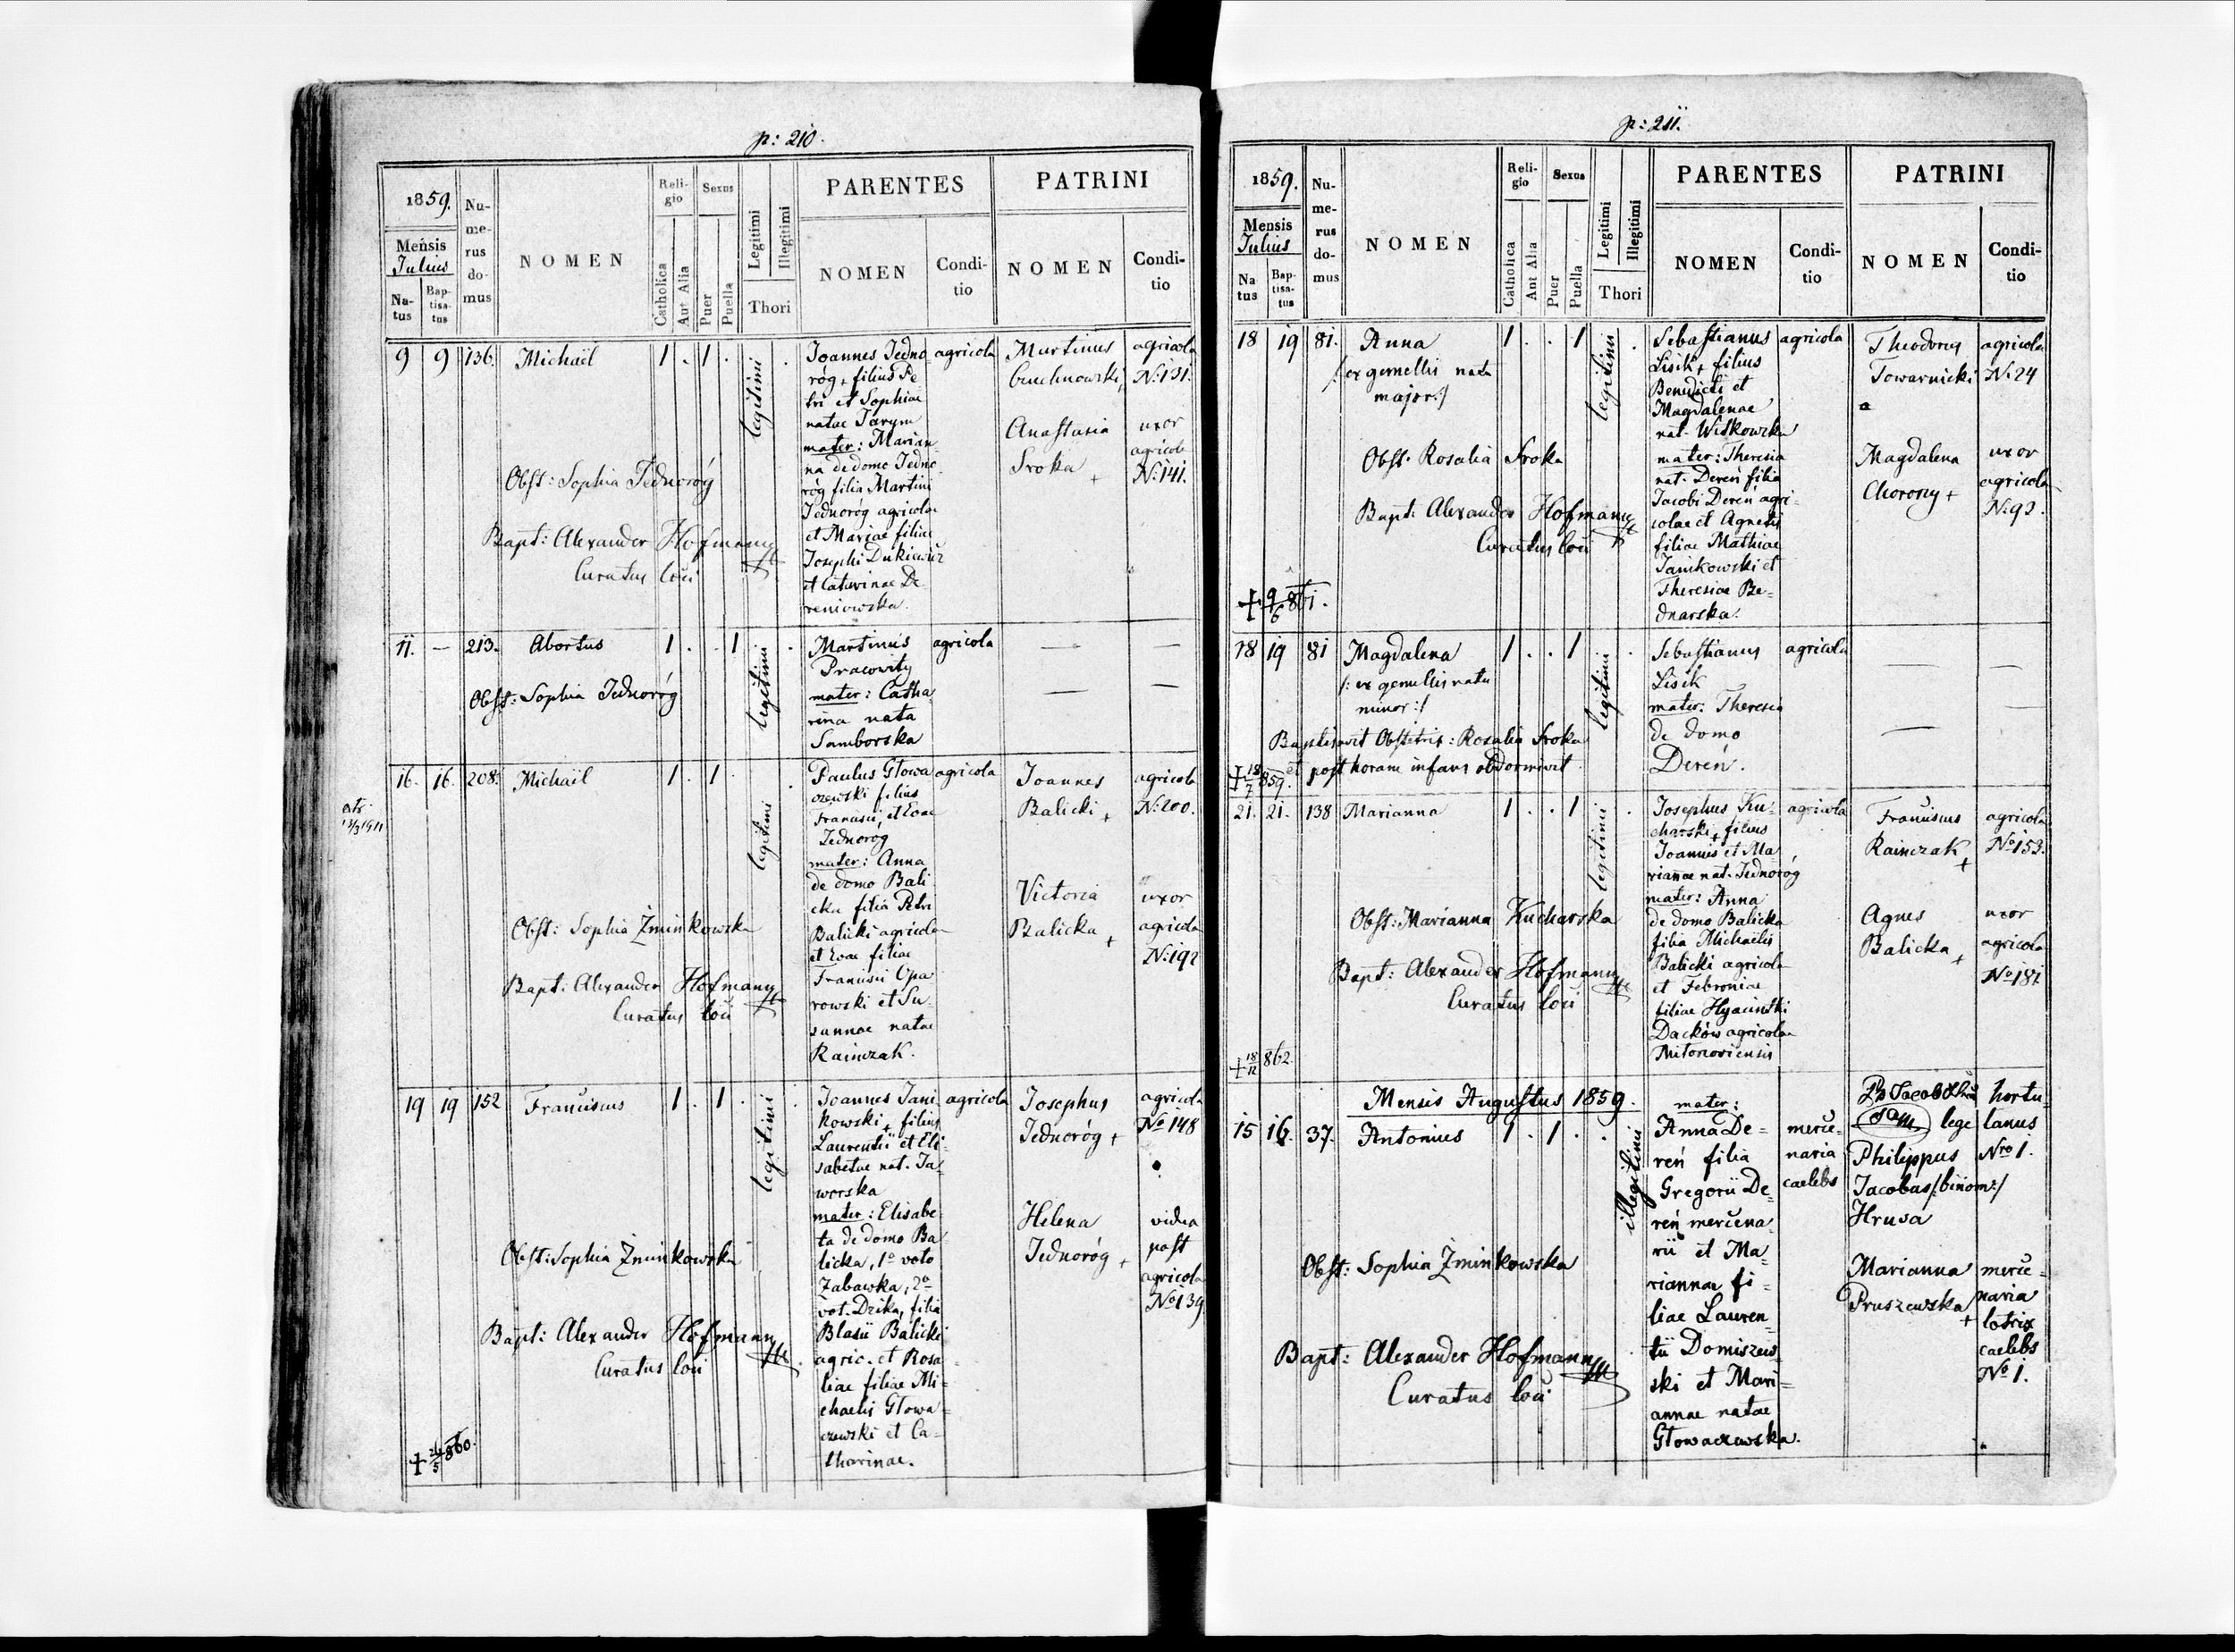 p: 210.
1859.
Mensis
Julius
Na-
tus
Bap-
tisa-
tus
Nu-
me-
rus
do-
mus
NOMEN
Reli-
gio
Catholica
Aut Alia
Sexus
Puer
Puella
Legitimi
Illegitimi
Thori
PARENTES
NOMEN
Condi-
tio
PATRINI
NOMEN
Condi-
tio
9 9 136. Michaël 1 . 1 . legitimi .
Obst: Sophia Jednoróg
Bapt: Alexander Hofmann
Curatus loci
Joannes Jedno-
róg + filius Pe
tri et Sophiae
natae Jarym
mater: Marian
na de domo Jedno-
róg filia Martini
Jednorog agricolae
et Mariae filiae
Josephi Dukiewicz
et Catarinae De
reniowska.
agricola
Martinus
agricola
N: 131.
Anastasia
Sroka +
uxor
agricola
N: 141.
11. — 213. Abortus 1 . . 1 legitimi .
Obst: Sophia Jednoróg
Martinus
Pracowity
mater: Catha
rina nata
Samborska
agricola
— —
— —
16. 16. 208. Michaël 1 . 1 . legitimi .
13/3 1911
Obst: Sophia Żminkowska
Bapt: Alexander Hofmann
Curatus loci
Paulus Głowa
czewski filius
Francisci, et Evae
Jednoróg
mater: Anna
de domo Bali
cka filia Petri
Balicki agricolae
et Evae filiae
Francisci Opa
rowski et Su-
sannae natae
Rainczak.
agricola
Joannes
Balicki +
agricola
N: 200.
Victoria
Balicka +
uxor
agricola
N: 192
19 19 152 Franciscus 1 . 1 . legitimi .
Obst: Sophia Żminkowska
Bapt: Alexander Hofmann
Curatus loci
+ 860.
Joannes Jani
kowski + filius
Laurentii et Eli-
sabetae nat. Ja
worska
mater: Elisabe
ta de domo Ba
licka, 1o voto
Zabawka, 2o
vot. Dzika, filia
Blasii Balicki
agric. et Rosa
liae filiae Mi-
chaelis Głowa-
czewski et Ca-
tharinae.
agricola
Josephus
Jednoróg +
agricola
No 148
Helena
Jednoróg +
vidua
post
agricola
No 139
p: 211.
1859.
Mensis
Julius
Na
tus
Bap-
tisa-
tus
Nu-
me-
rus
do-
mus
NOMEN
Reli-
gio
Catholica
Aut Alia
Sexus
Puer
Puella
Legitimi
Illegitimi
Thori
PARENTES
NOMEN
Condi-
tio
PATRINI
NOMEN
Condi-
tio
18 19 81. Anna 1 . . 1 legitimi .
/: ex gemellis nata
major :/
Obst. Rosalia Sroka
Bapt: Alexander Hofmann
Curatus loci
+ 9/6 861.
Sebastianus
Lisik + filius
Benedicti et
Magdalenae
nat. Witkowska
mater: Theresia
nat. Dereń filia
Jacobi Dereń agri-
colae et Agnetis
filiae Mathiae
Janikowski et
Theresiae Be-
dnarska.
agricola
Theodorus
Towarnicki
agricola
N: 24
Magdalena
Chorozy +
uxor
agricola
N: 92.
18 19 81 Magdalena 1 . . 1 legitimi .
/: ex gemellis nata
minor :/
Baptisavit Obstetrix: Rosalia Sroka
et post horam infans obdormivit
+ 18/7 859.
Sebastianus
Lisik
mater: Theresia
de domo
Dereń.
agricola
— —
— —
21. 21. 138 Marianna 1 . . 1 legitimi .
Obst: Marianna Kucharska
Bapt: Alexander Hofmann
Curatus loci
+ 18/12 862.
Josephus Ku-
charski + filius
Joannis et Ma
riannae nat. Jednoróg
mater: Anna
de domo Balicka
filia Michaelis
Balicki agricolae
et Febroniae
filiae Hyacinthi
Dacków agricolae
agricola
Franciscus
Rainczak +
agricola
No 153.
Agnes
Balicka +
uxor
agricola
No 187.
Mensis Augustus 1859.
15 16. 37. Antonius 1 . 1 . . illegitimi
Obst: Sophia Żminkowska
Bapt: Alexander Hofmann
Curatus loci
mater:
Anna De-
reń filia
Gregorii De-
reń mercena-
rii et Ma-
riannae fi-
liae Lauren-
tii Domiszew-
ski et Mari-
annae natae
Głowaczewska.
merce-
naria
caelebs
lege
Philippus
Jacobus /: binom :/
Hrusa
hortu-
lanus
Nro 1.
Marianna
Pruszewska +
merce-
naria
lotrix
caelebs
No 1.